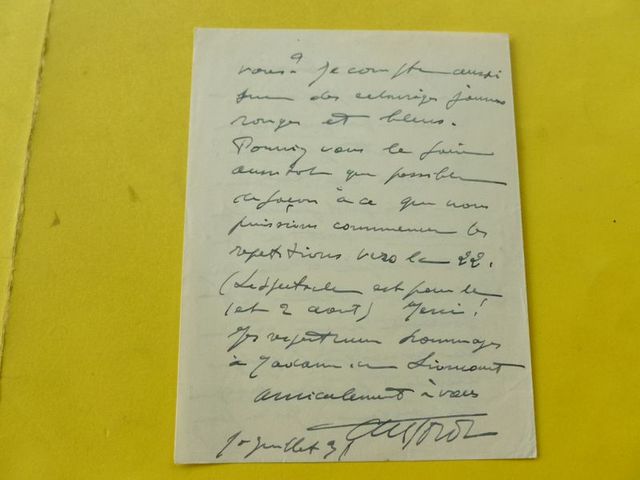 vous? Je compte aussi
sur des éclairages jaunes
rouges et bleus.
Pourriez vous le faire
aussitôt que possible
de façon à ce que nous
puissions commencer les
repetitions vers le 22.
(Le spectacle est pour le
1 et 2 aout) Merci!
Mes respectueux hommages
à Madame
amicalement à vous
juillet